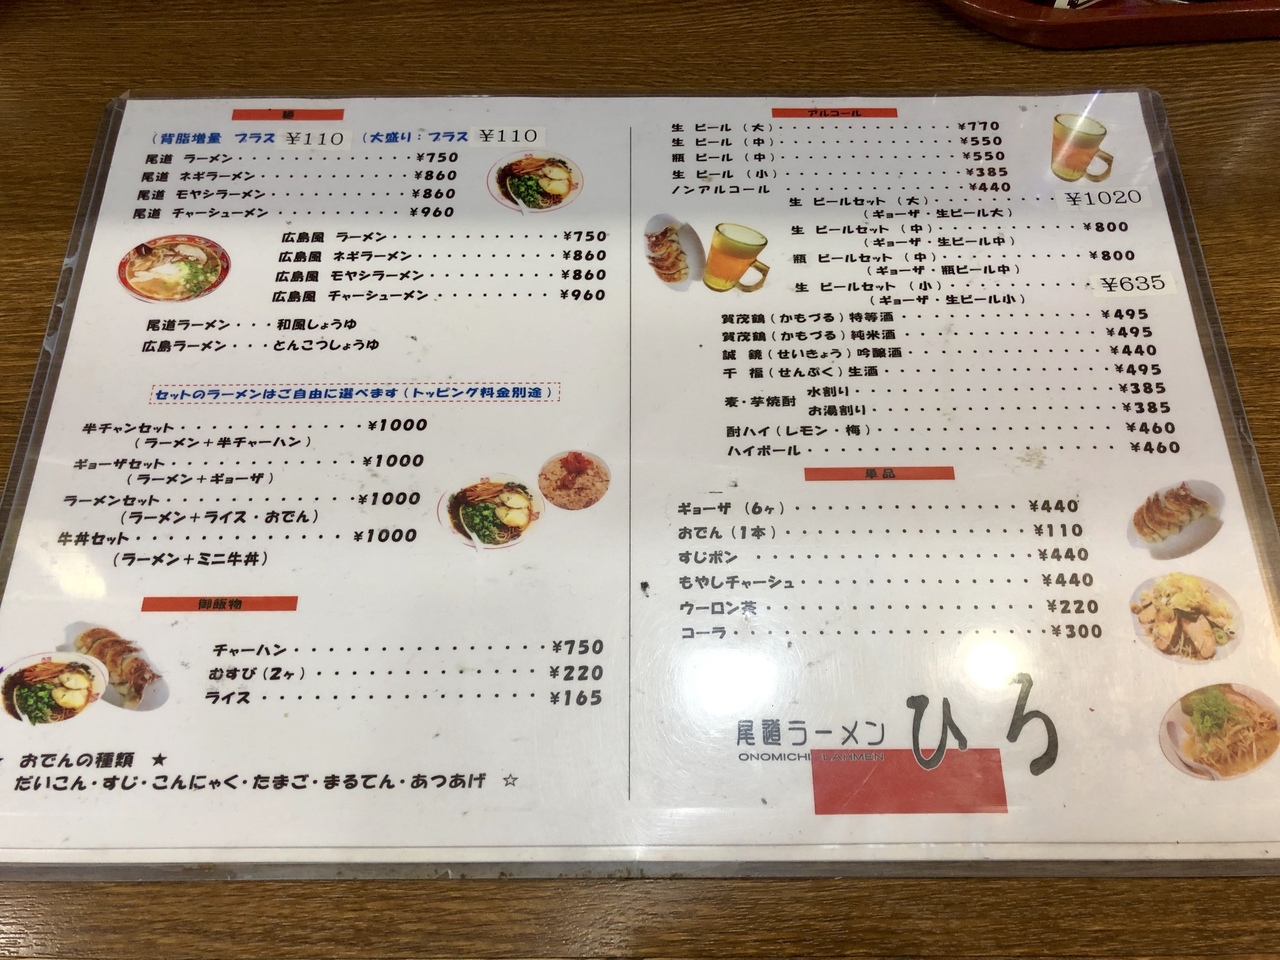 麺
(背脂増量 プラス ¥110 (大盛り：プラス ¥110
尾道 ラーメン・・・・・・・・・・・・¥750
尾道 ネギラーメン・・・・・・・・・・・¥860
尾道 モヤシラーメン・・・・・・・・・・¥860
尾道 チャーシューメン・・・・・・・・・¥960
広島風 ラーメン・・・・・・・・・・・¥750
広島風 ネギラーメン・・・・・・・・・・¥860
広島風 モヤシラーメン・・・・・・・・・¥860
広島風 チャーシューメン・・・・・・・・¥960
尾道ラーメン・・・和風しょうゆ
広島ラーメン・・・とんこつしょうゆ
セットのラーメンはご自由に選べます(トッピング料金別途)
半チャンセット・・・・・・・・・・・・¥1000
(ラーメン＋半チャーハン)
ギョーザセット・・・・・・・・・・・・¥1000
(ラーメン＋ギョーザ)
ラーメンセット・・・・・・・・・・・・¥1000
(ラーメン＋ライス・おでん)
牛丼セット・・・・・・・・・・・・・・¥1000
(ラーメン＋ミニ牛丼)
御飯物
チャーハン・・・・・・・・・・・・・・¥750
むすび(2ヶ)・・・・・・・・・・・・・¥220
ライス・・・・・・・・・・・・・・・・¥165
おでんの種類 ★
だいこん・すじ・こんにゃく・たまご・まるてん・あつあげ ☆
アルコール
生 ビール (大)・・・・・・・・・・・・¥770
生 ビール (中)・・・・・・・・・・・・¥550
瓶 ビール (中)・・・・・・・・・・・・¥550
生 ビール (小)・・・・・・・・・・・・¥385
ノンアルコール ・・・・・・・・・・・・¥440
生 ビールセット (大)・・・・・・・・・¥1020
(ギョーザ・生ビール大)
生 ビールセット (中)・・・・・・・・・¥800
(ギョーザ・生ビール中)
瓶 ビールセット (中)・・・・・・・・・¥800
(ギョーザ・瓶ビール中)
生 ビールセット (小)・・・・・・・・・¥635
(ギョーザ・生ビール小)
賀茂鶴(かもづる)特等酒・・・・・・・・・・・・・¥495
賀茂鶴(かもづる)純米酒・・・・・・・・・・・・・¥495
誠 鏡(せいきょう)吟醸酒・・・・・・・・・・・・¥440
千 福(せんぷく)生酒・・・・・・・・・・・・・・¥495
麦・芋焼酎 水割り・・・・・・・・・・・・・・・・¥385
お湯割り・・・・・・・・・・・・・・・・¥385
酎ハイ(レモン・梅)・・・・・・・・・・・・・・・¥460
ハイボール・・・・・・・・・・・・・・・・・・・¥460
単品
ギョーザ (6ヶ)・・・・・・・・・・・・¥440
おでん(1本)・・・・・・・・・・・・・¥110
すじポン ・・・・・・・・・・・・・・・¥440
もやしチャーシュ・・・・・・・・・・・・¥440
ウーロン茶・・・・・・・・・・・・・・・¥220
コーラ・・・・・・・・・・・・・・・・・¥300
尾道ラーメン ひろ
ONOMICHI LAHMEN